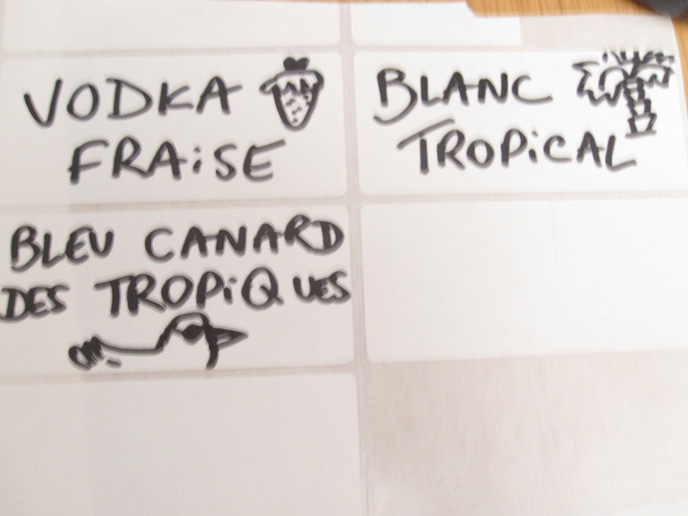 VODKA
FRAiSE
BLANC
TROPiCAL
BLEU CANARD
DES TROPiQUES